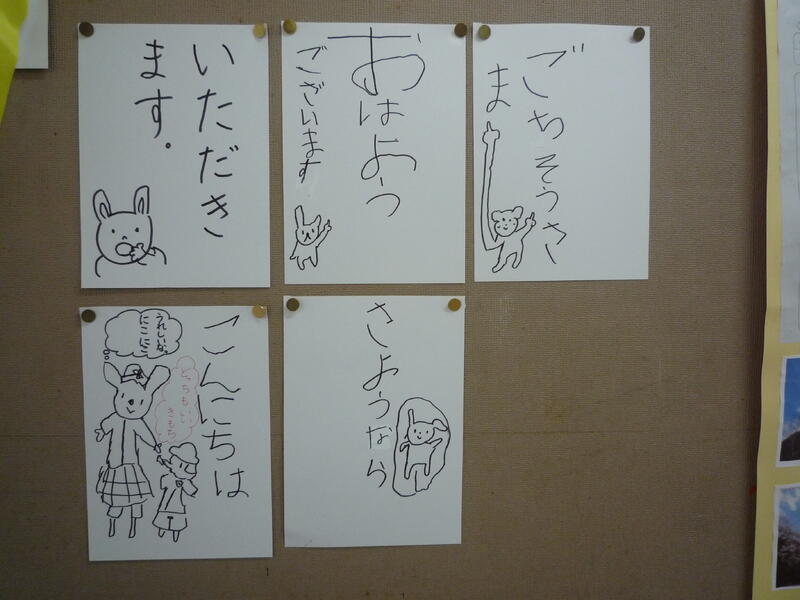 いただき
ます。
おはよう
ございます
ごちそうさ
ま
こんにちは
うれしいな。
にこにこ
どっちもいい
きもち
さようなら